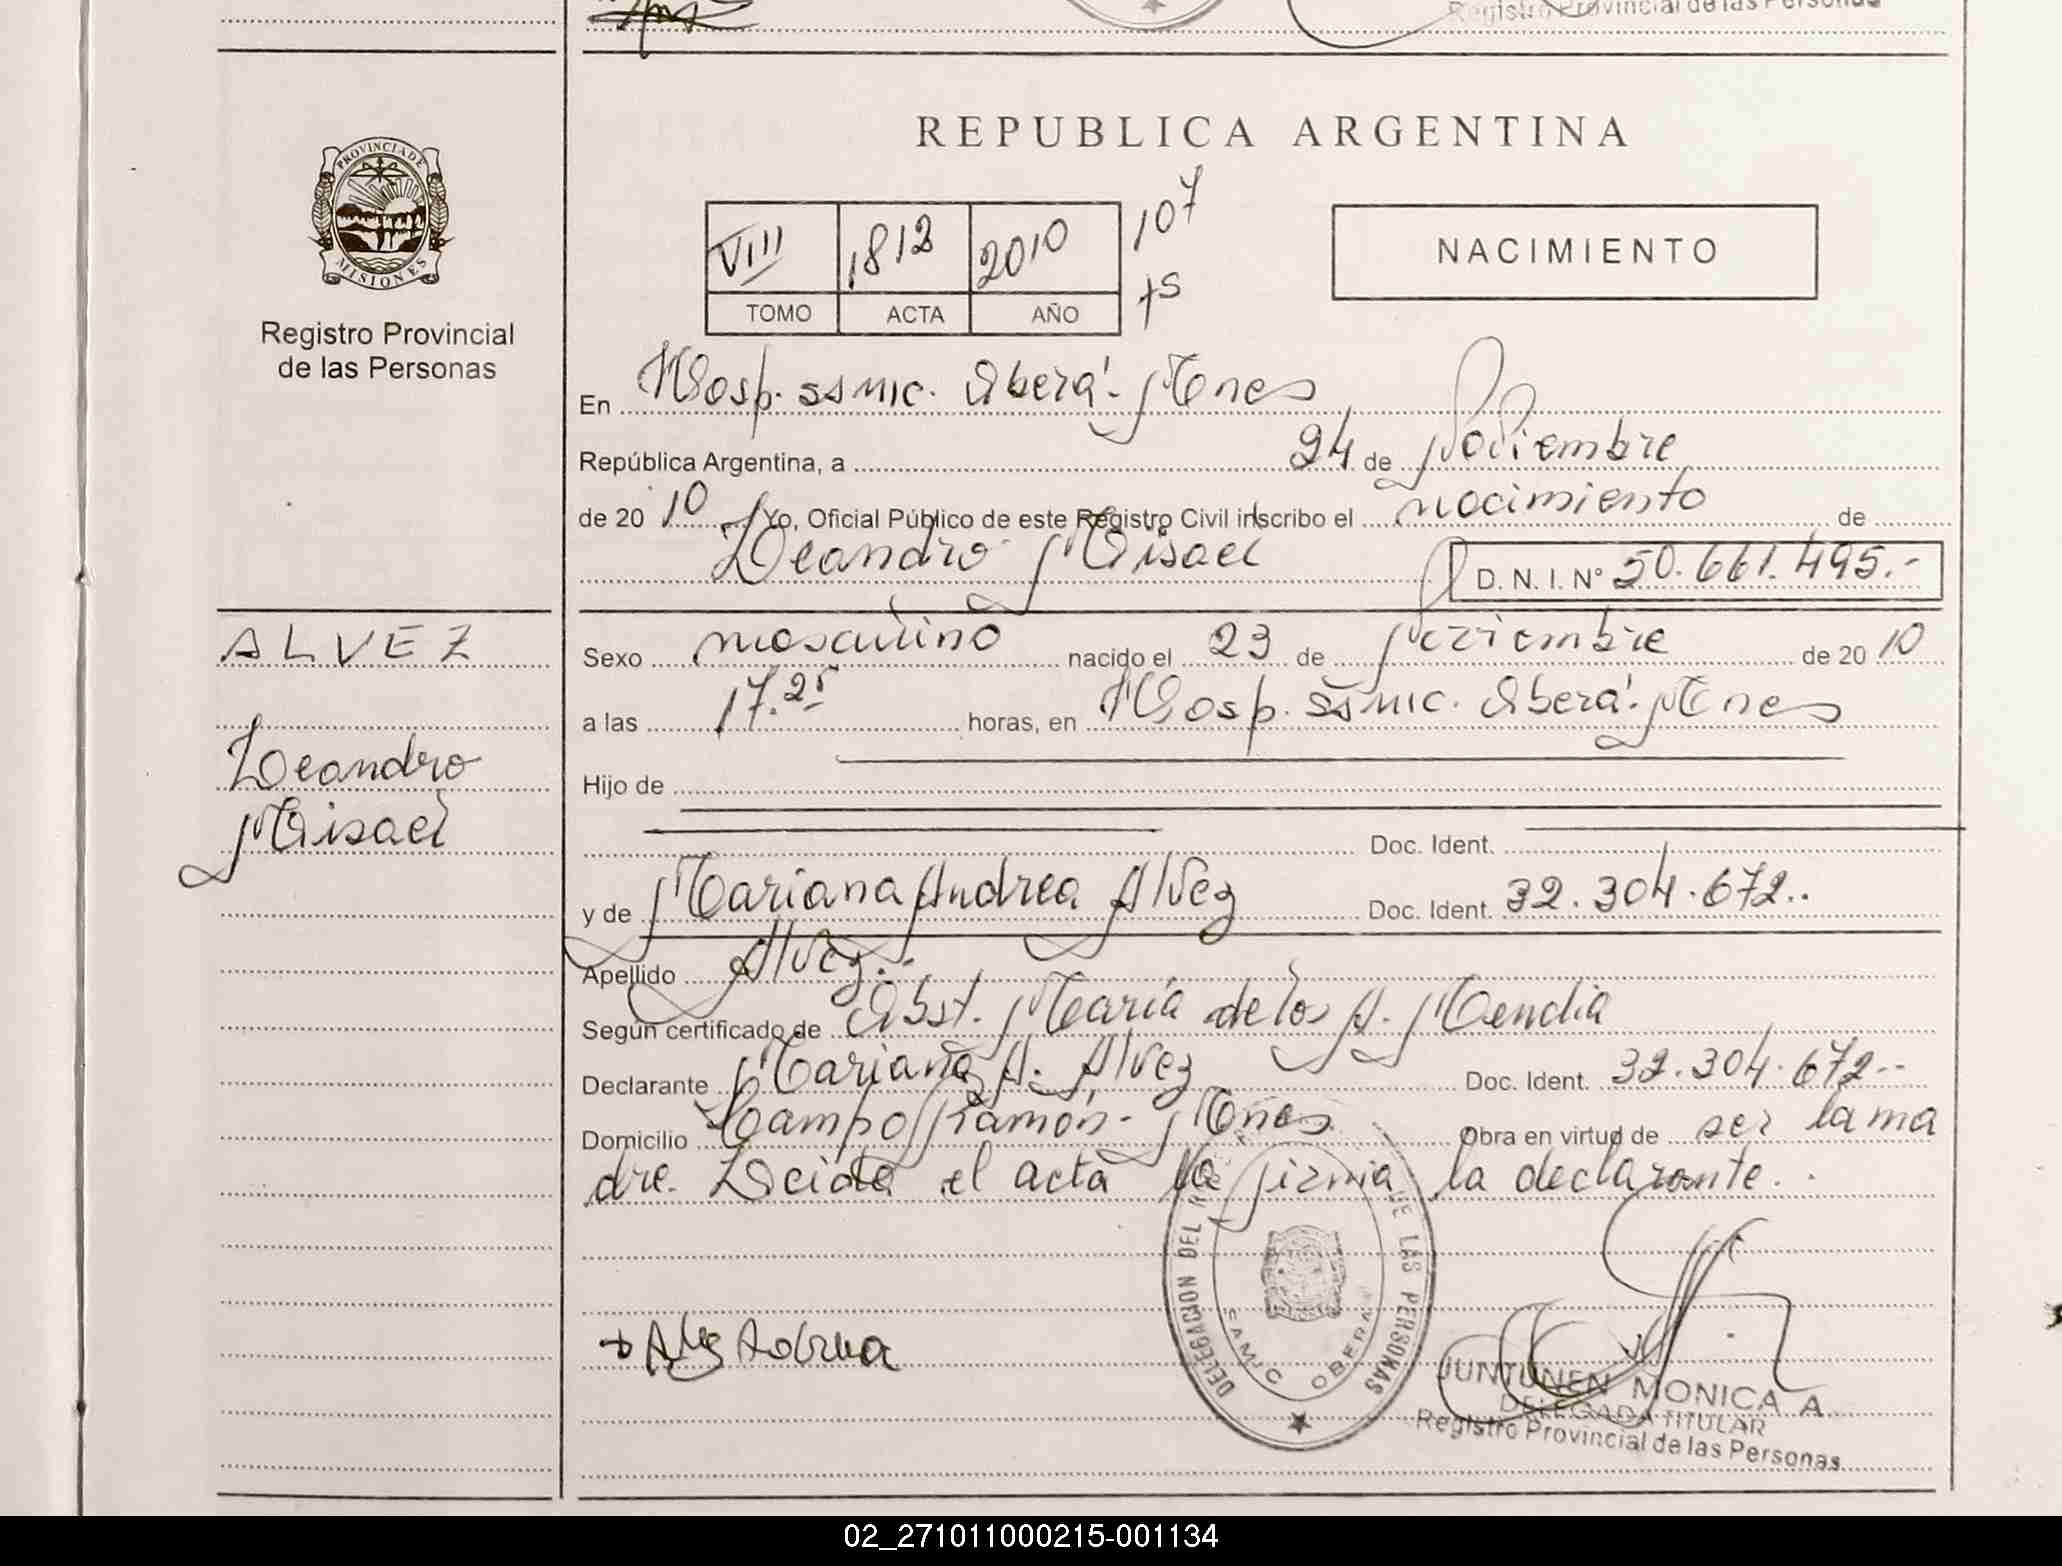 Registro Provincial de las Personas
REPUBLICA ARGENTINA
PROVINCIA DE MISIONES
Registro Provincial
de las Personas
VIII 1812 2010 107
TOMO ACTA AÑO
NACIMIENTO
En Hosp. SSMIC. Oberá - Mnes
República Argentina, a 24 de Noviembre
de 2010 Yo, Oficial Público de este Registro Civil inscribo el nacimiento de
Leandro Misael D. N. I. N° 50.661.495.-
ALVEZ
Leandro
Misael
Sexo masculino nacido el 23 de Noviembre de 2010
a las 17.25 horas, en Hosp. SSMIC. Oberá. Mnes
Hijo de
Doc. Ident.
y de Mariana Andrea Alvez Doc. Ident. 32.304.672..
Apellido Alvez.-
Según certificado de Obst. María de los A. Mendia
Declarante Mariana A. Alvez Doc. Ident. 32.304.672--
Domicilio Campo Ramón - Mnes Obra en virtud de ser la ma
dre. Leida el acta la firma la declarante..
DELEGACION DEL REGISTRO DE LAS PERSONAS
SAMIC OBERA
JUNTUNEN MONICA A
DELEGADA TITULAR
Registro Provincial de las Personas
02_271011000215-001134